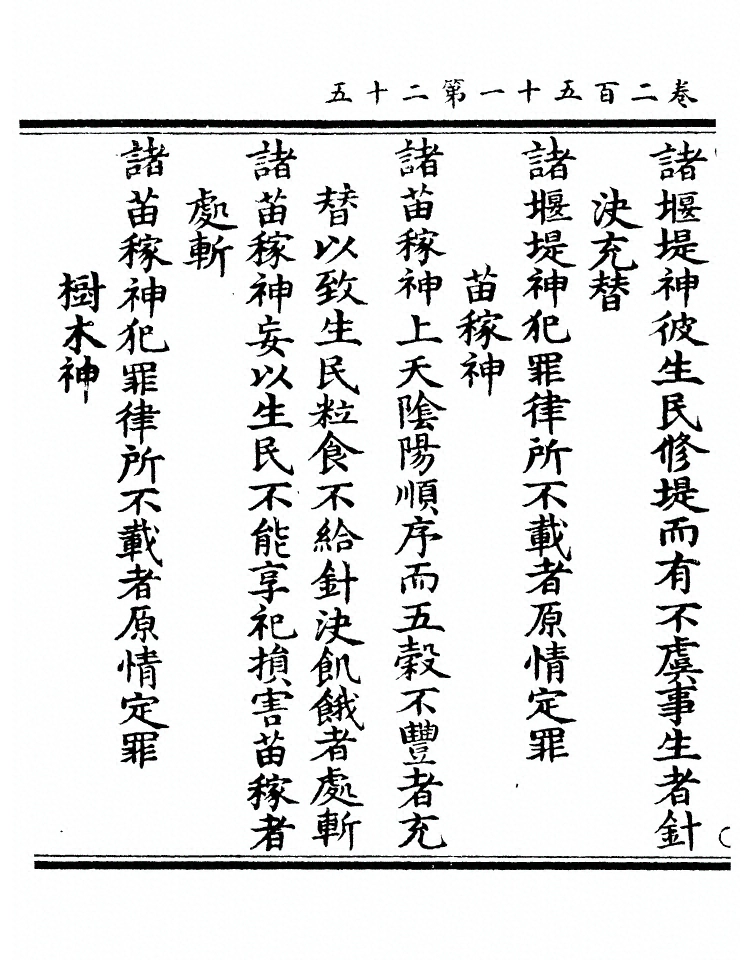 卷二百五十一第二十五
諸堰堤神彼生民修堤而有不虞事生者針
決充替
諸堰堤神犯罪律所不載者原情定罪
苗稼神
諸苗稼神上天陰陽順序而五穀不豐者充
替以致生民粒食不給針決飢餓者處斬
諸苗稼神妄以生民不能享祀損害苗稼者
處斬
諸苗稼神犯罪律所不載者原情定罪
樹木神